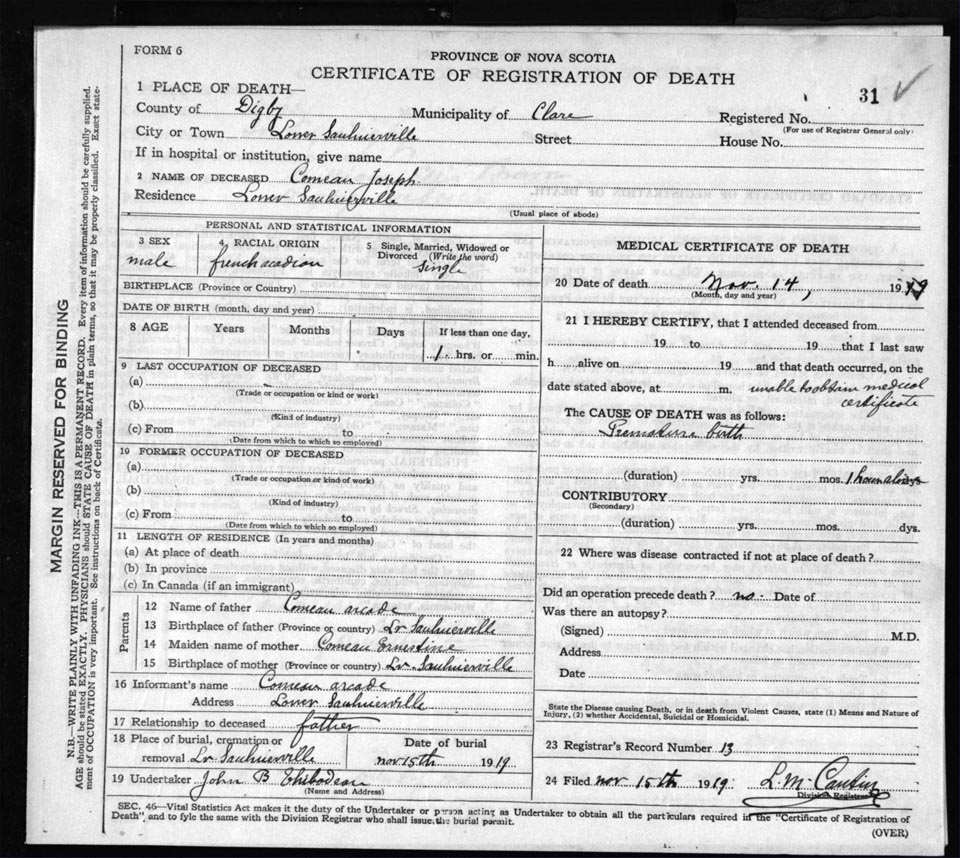 FORM 6
PROVINCE OF NOVA SCOTIA
CERTIFICATE OF REGISTRATION OF DEATH
31 ✓
1 PLACE OF DEATH—
County of Digby Municipality of Clare Registered No.
(For use of Registrar General only)
City or Town Lower Saulnierville Street House No.
If in hospital or institution, give name
2 NAME OF DECEASED Comeau Joseph
Residence Lower Saulnierville
(Usual place of abode)
PERSONAL AND STATISTICAL INFORMATION
3 SEX 4 RACIAL ORIGIN 5 Single, Married, Widowed or Divorced (Write the word)
male french acadian single
BIRTHPLACE (Province or Country)
DATE OF BIRTH (month, day and year)
8 AGE Years Months Days If less than one day,
1 hrs. or min.
9 LAST OCCUPATION OF DECEASED
(a)
(Trade or occupation or kind or work)
(b)
(Kind of industry)
(c) From to
(Date from which to which so employed)
10 FORMER OCCUPATION OF DECEASED
(a)
(Trade or occupation or kind of work)
(b)
(Kind of industry)
(c) From to
(Date from which so which so employed)
11 LENGTH OF RESIDENCE (In years and months)
(a) At place of death
(b) In province
(c) In Canada (if an immigrant)
Parents
12 Name of father Comeau arcade
13 Birthplace of father (Province or country) Lr Saulnierville
14 Maiden name of mother Comeau Ernestine
15 Birthplace of mother (Province or country) Lr. Saulnierville
16 Informant's name Comeau arcade
Address Lower Saulnierville
17 Relationship to deceased father
18 Place of burial, cremation or removal Lr Saulnierville
Date of burial
nov 15th 1919
19 Undertaker John B Thibodeau
(Name and Address)
MEDICAL CERTIFICATE OF DEATH
20 Date of death Nov. 14, 1919
(Month, day and year)
21 I HEREBY CERTIFY, that I attended deceased from
19 to 19 that I last saw
h alive on 19 and that death occurred, on the
date stated above, at m. unable to obtain medical
certificate
The CAUSE OF DEATH was as follows:
Premature birth
(duration) yrs. mos. 1 hour
CONTRIBUTORY
(Secondary)
(duration) yrs. mos. dys.
22 Where was disease contracted if not at place of death?
Did an operation precede death? no. Date of
Was there an autopsy?
(Signed) M.D.
Address
Date
State the Disease causing Death, or in death from Violent Causes, state (1) Means and Nature of
Injury, (2) whether Accidental, Suicidal or Homicidal.
23 Registrar's Record Number 13
24 Filed nov 15th 1919 L. M.
Division Registrar
SEC. 46—Vital Statistics Act makes it the duty of the Undertaker or person acting as Undertaker to obtain all the particulars required in the "Certificate of Registration of
Death" and to fyle the same with the Division Registrar who shall issue the burial permit.
(OVER)
MARGIN RESERVED FOR BINDING
N.B.—WRITE PLAINLY WITH UNFADING INK—THIS IS A PERMANENT RECORD. Every item of information should be carefully supplied.
AGE should be stated EXACTLY. PHYSICIANS should STATE CAUSE OF DEATH in plain terms, so that it may be properly classified. Exact state-
ment of OCCUPATION is very important. See instructions on back of Certificate.